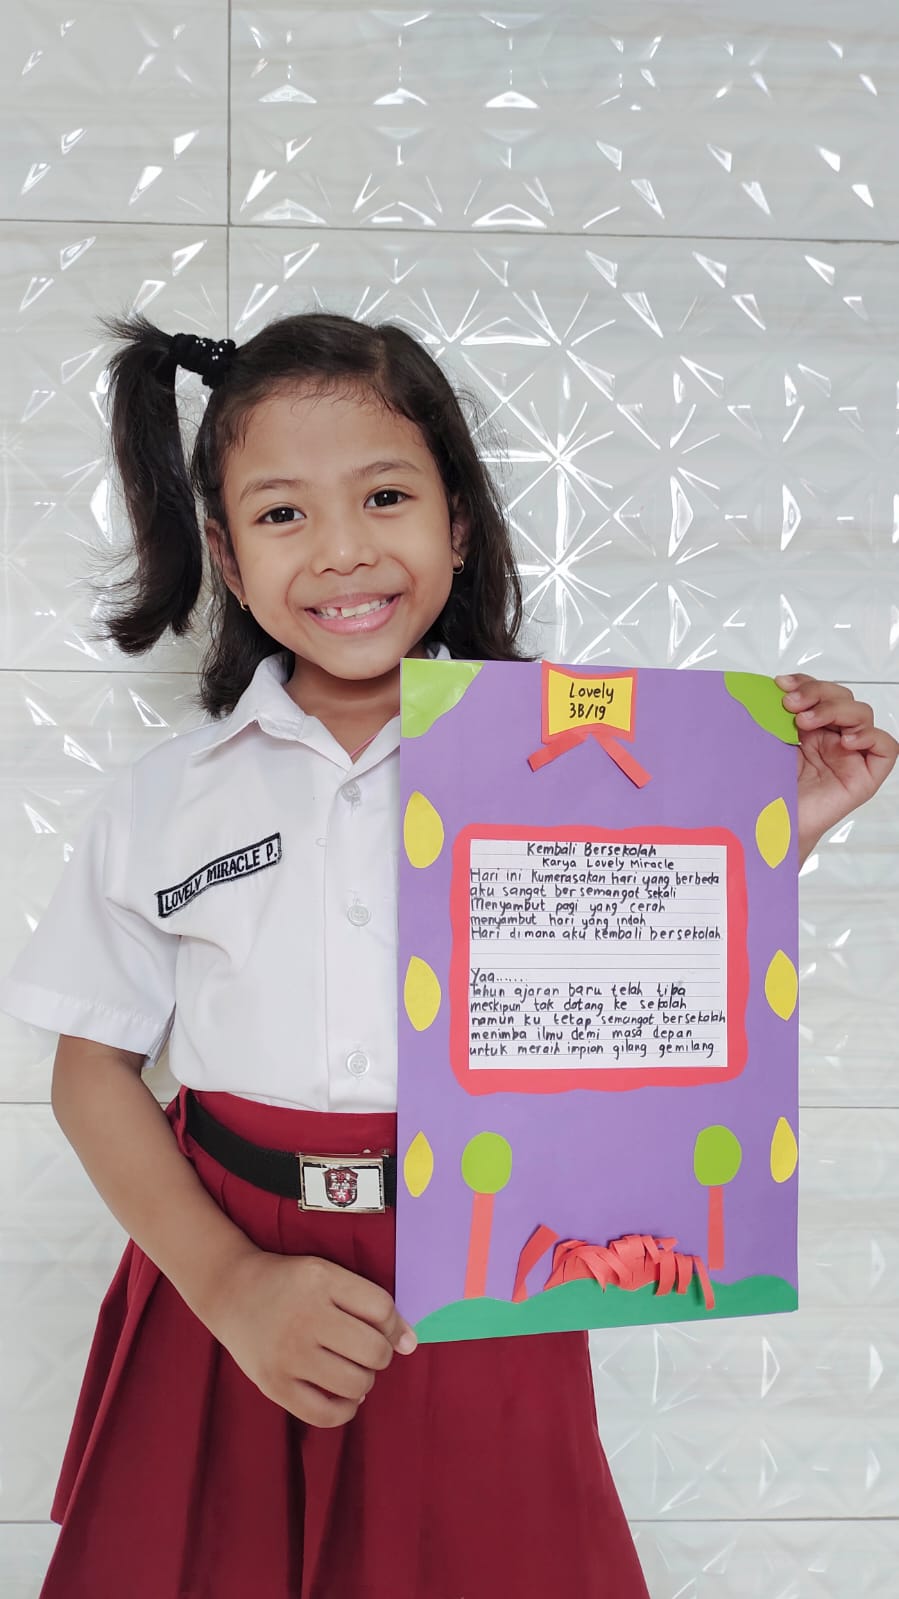 Lovely
3B/19
LOVELY MIRACLE P.
Kembali Bersekolah
Karya Lovely Miracle
Hari ini Kumerasakan hari yang berbeda
aku sangat bersemangat sekali
Menyambut pagi yang cerah
menyambut hari yang indah
Hari dimana aku kembali bersekolah
Yaa......
Tahun ajaran baru telah tiba
meskipun tak datang ke sekolah
namun ku tetap semangat bersekolah
menimba ilmu demi masa depan
untuk meraih impian gilang gemilang